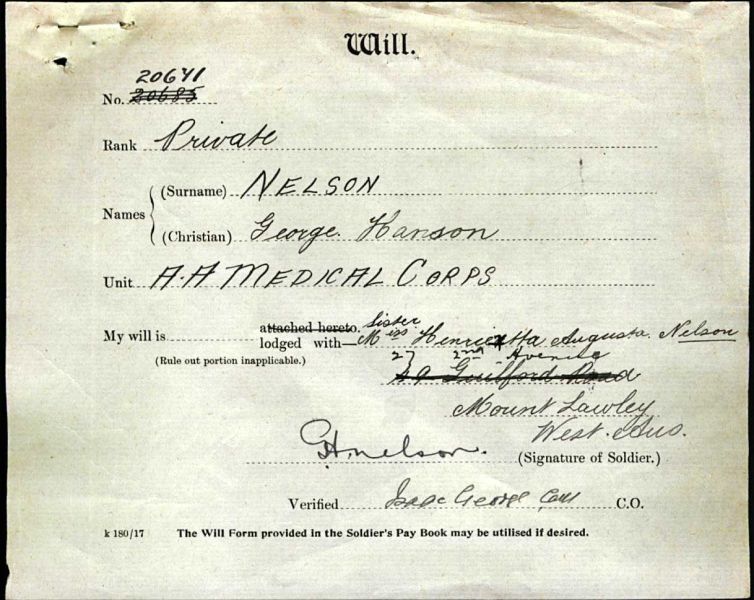 Will.
20641
No. 20685
Rank Private
Names (Surname) NELSON
(Christian) George Hanson
Unit A.A MEDICAL CORPS
My will is attached hereto. Sister
lodged with—Miss Henrietta Augusta Nelson
(Rule out portion inapplicable.)
27 2nd Avenue
Guilford Road
Mount Lawley
West. Aus.
GHnelson. (Signature of Soldier.)
Verified Isaac George C.O.
k 180/17 The Will Form provided in the Soldier's Pay Book may be utilised if desired.